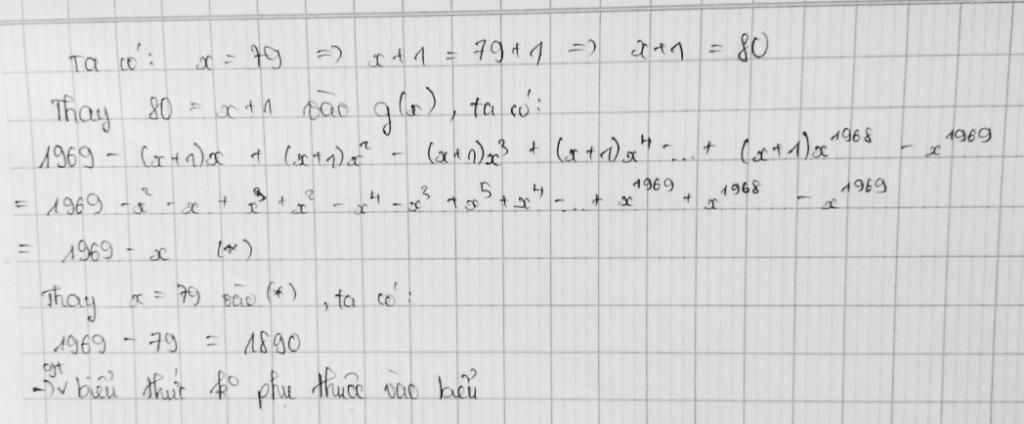 Ta có: x = 79 => x+1 = 79+1 => x+1 = 80
Thay 80 = x+1 vào g(x), ta có:
1969 - (x+1)x + (x+1)x² - (x+1)x³ + (x+1)x⁴ - ... + (x+1)x¹⁹⁶⁸ - x¹⁹⁶⁹
= 1969 - x² - x + x³ + x² - x⁴ - x³ + x⁵ + x⁴ - ... + x¹⁹⁶⁹ + x¹⁹⁶⁸ - x¹⁹⁶⁹
= 1969 - x (*)
Thay x = 79 vào (*), ta có:
1969 - 79 = 1890
biểu thức k° phụ thuộc vào biểu